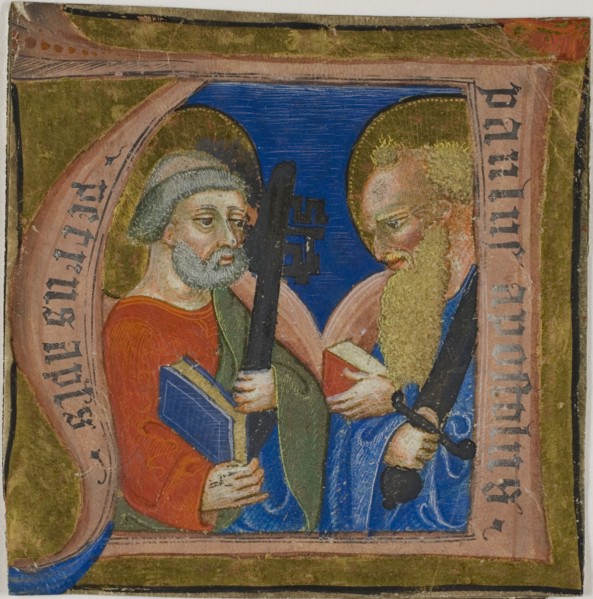 petrus apl's
paulus apostolus